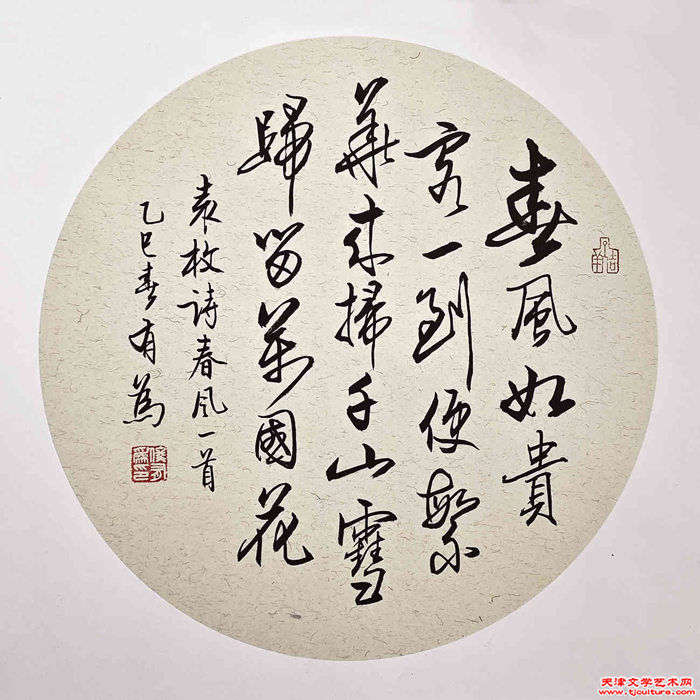 春風如貴
客一到便繁
華來掃千山雪
歸留萬國花
袁枚诗春风一首
乙巳春有為
天津文学艺术网
www.tjculture.com